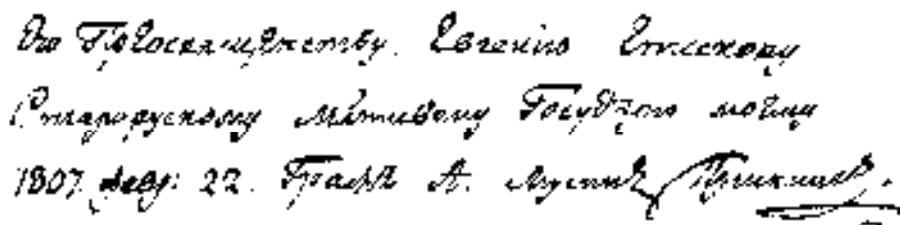 Его Преосвященству. Евгению Епископу
Старорускому Млтивому Государю моему
1807. февр: 22. Графъ А. Мусинъ Пушкинъ.